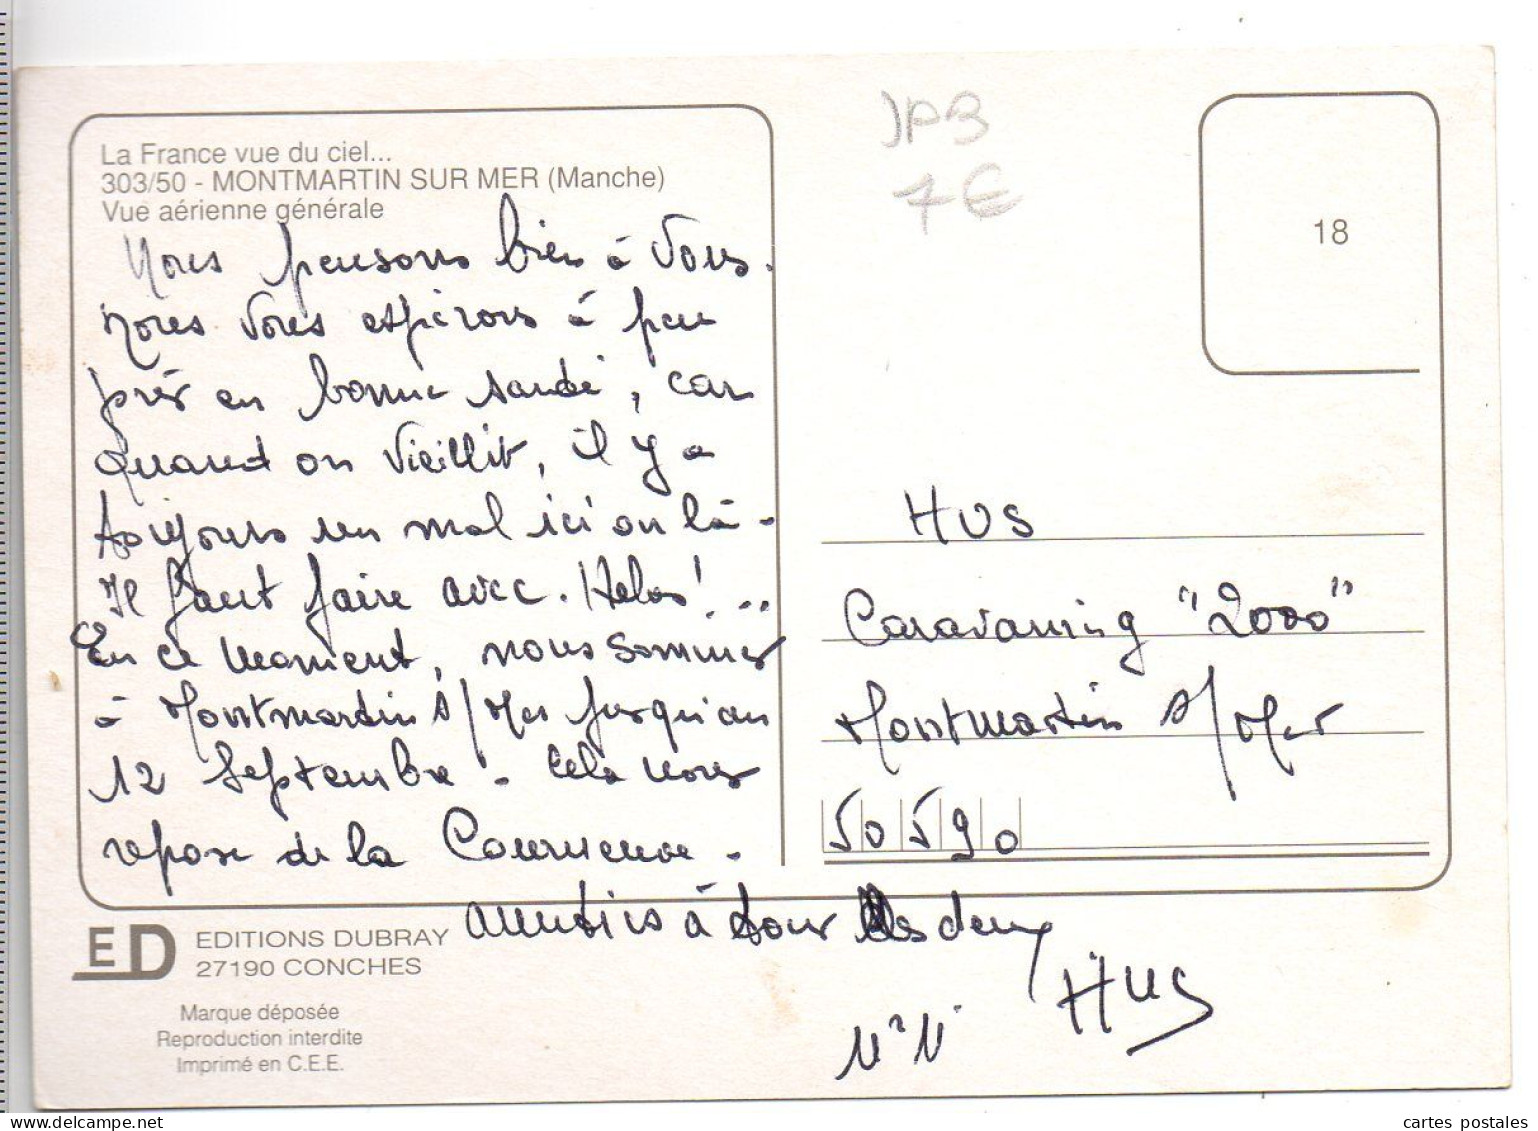 La France vue du ciel...
303/50 - MONTMARTIN SUR MER (Manche)
Vue aérienne générale
Nous pensons bien à vous.
nous vous espérons à peu
près en bonne santé, car
quand on vieillit, il y a
toujours un mal ici ou là -
Il faut faire avec. Hélas! ..
En ce moment, nous sommes
à Montmartin s/Mer jusqu'au
12 Septembre - Cela nous
repose de la Courneuve -
amitiés à tous les deux
HUS
JPB
7 €
18
HUS
Caravaning "2000"
Montmartin s/Mer
50590
ED
EDITIONS DUBRAY
27190 CONCHES
Marque déposée
Reproduction interdite
Imprimé en C.E.E.
cartes postales